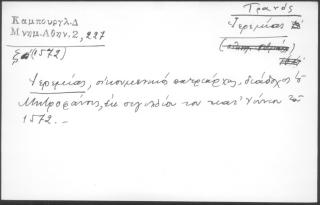 Τρανός
Καμπουργλ.Δ
Μνημ.Αθην.2, 227
Ἱερεμίας
(1572)
Ἱερεμίας, οἰκουμενικὸς πατριάρχης, διάδοχος
Μητροφάνους, ἐν σιγιλλίῳ του κατ' Ἰούνιον τοῦ
1572.-